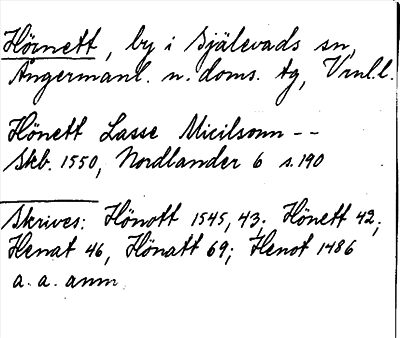 Hörnett, by i Själevads sn,
Ångermanl. n. doms. tg, Vnl.l.
Hönett Lasse Micilsonn --
Skb. 1550, Nordlander 6 s. 190
Skrives: Hönott 1545, 43; Hönett 42;
Henat 46, Hönatt 69; Henot 1486
a. a. anm.